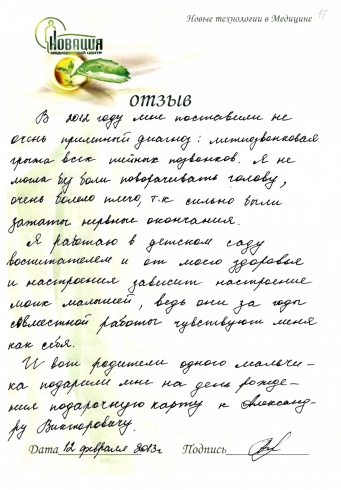 Новые технологии в Медицине
15
НОВАЦИЯ
МЕДИЦИНСКИЙ ЦЕНТР
ОТЗЫВ
В 2012 году мне поставили не
очень приятный диагноз: межпозвонковая
грыжа всех шейных позвонков. Я не
могла без боли поворачивать голову,
очень болело плечо, т.к сильно были
зажаты нервные окончания.
Я работаю в детском саду
воспитателем и от моего здоровья
и настроения зависит настроение
моих малышей, ведь они за годы
совместной работы чувствуют меня
как себя.
И вот родители одного мальчи-
ка подарили мне на день рожде-
ния подарочную карту к Александ-
ру Викторовичу.
Дата 12 февраля 2013г Подпись